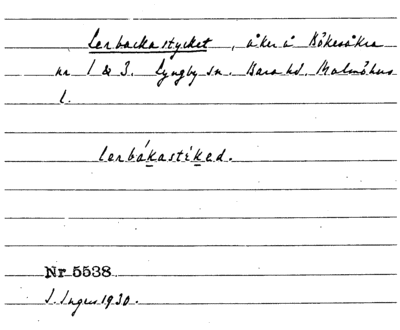 Lerbackastycket, åker å Bökesåkra
nr 1 & 3. Lyngby sn. Bara hd. Malmöhus
l.
lerbákastiked.
Nr 5538
I. Ingers 1930.